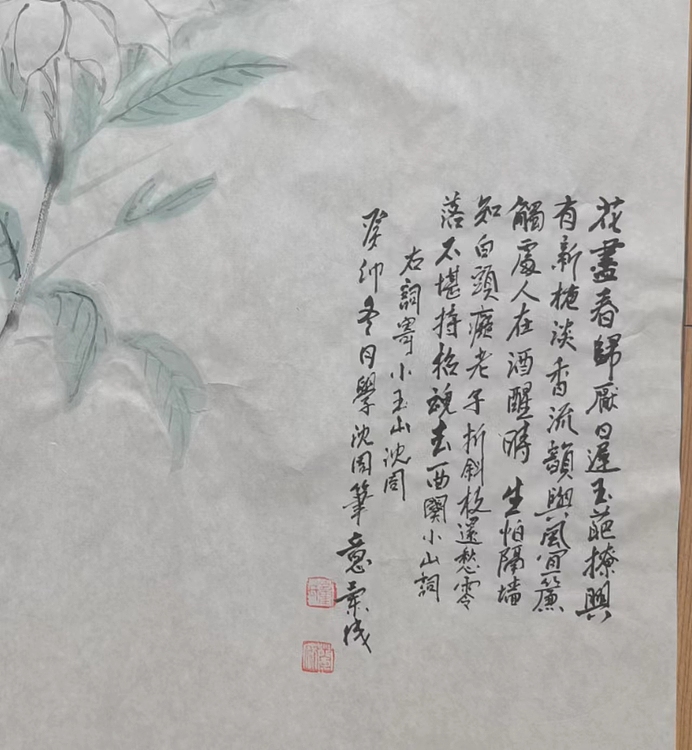 花盡春歸厭日遲玉葩撩興
有新梔淡香流韻與風宜簾
觸處人在酒醒時生怕隔墻
知白頭癡老子折斜枝還愁零
落不堪持招魂去闋小山詞
右詞寄小玉山沈周
癸卯冬月學沈周筆意